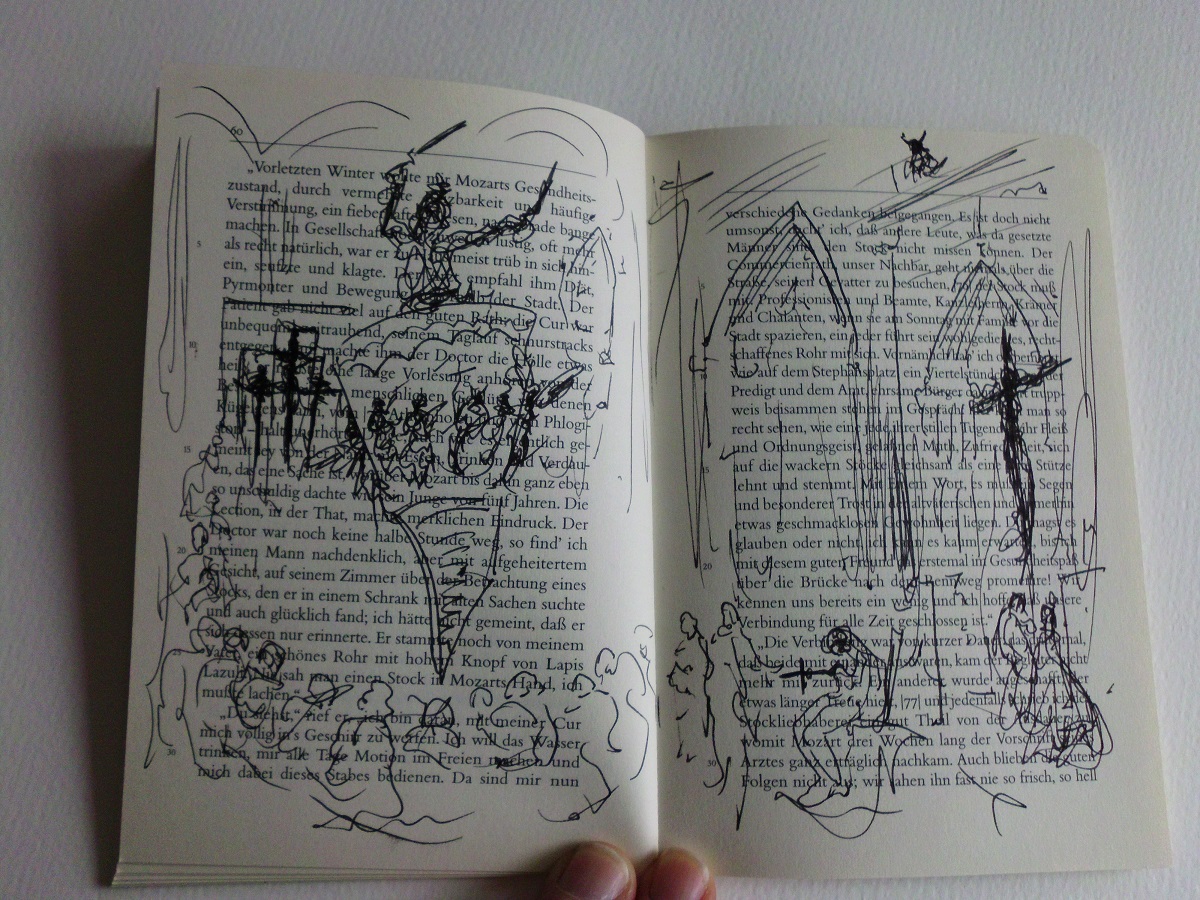 60
„Vorletzten Winter wollte mir Mozarts Gesundheits-
zustand, durch vermehrte Reizbarkeit und häufige
Verstimmung, ein fieberhaftes Wesen, nachgerade bange
machen. In Gesellschaft lustig, oft mehr
5
als recht natürlich, war er zu Haus meist trüb in sich hin-
ein, seufzte und klagte. Der Arzt empfahl ihm Diät,
Pyrmonter und Bewegung der Stadt. Der
Patient gab nicht viel auf den guten Rath; die Cur war
unbequem, zeitraubend, seinem Taglauf schnurstracks
10
entgegen. machte ihm der Doctor die Hölle etwas
eine lange Vorlesung anhören von der
menschlichen denen
Kügelgens darin, vom Phlogi-
ston –
meint
15
en, das eine Sache ist, worüber Mozart bis dahin ganz eben
so unschuldig dachte wie sein Junge von fünf Jahren. Die
Lection, in der That, machte merklichen Eindruck. Der
Doctor war noch keine halbe Stunde weg, so find' ich
20
meinen Mann nachdenklich, aber mit aufgeheitertem
Gesicht, auf seinem Zimmer über der Betrachtung eines
Stocks, den er in einem Schrank mit alten Sachen suchte
und auch glücklich fand; ich hätte nicht gemeint, daß er
sich dessen nur erinnerte. Er stammte noch von meinem
Vater, ein schönes Rohr mit hohem Knopf von Lapis
Lazuli. Nie sah man einen Stock in Mozarts Hand, ich
mußte lachen.“
„Du siehst,“ rief er, „ich bin daran, mit meiner Cur
mich völlig in's Geschirr zu werfen. Ich will das Wasser
30
trinken, mir alle Tage Motion im Freien machen und
mich dabei dieses Stabes bedienen. Da sind mir nun
verschiedene Gedanken beigegangen. Es ist doch nicht
umsonst, dacht' ich, daß andere Leute, was da gesetzte
Männer sind, den Stock nicht missen können. Der
Commercienrath, unser Nachbar, geht niemals über die
5
Straße, seinen Gevatter zu besuchen, der Stock muß
mit. Professionisten und Beamte, Kanzleiherrn, Krämer
und Chalanten, wenn sie am Sonntag mit Familie vor die
Stadt spazieren, ein jeder führt sein wohlgedientes, recht-
schaffenes Rohr mit sich. Vornämlich hab' ich
10
wie auf dem Stephansplatz, ein Viertelstündchen vor der
Predigt und dem Amt, ehrsame Bürger trupp-
weis beisammen stehen im Gespräch: man so
recht sehen, wie eine jede ihrer stillen Tugenden, ihr Fleiß
und Ordnungsgeist, gelaßner Muth, Zufriedenheit, sich
15
auf die wackern Stöcke gleichsam als eine Stütze
lehnt und stemmt. Mit Einem Wort, es muß Segen
und besonderer Trost in der altväterischen und immerhin
etwas geschmacklosen Gewohnheit liegen. Du magst es
glauben oder nicht, ich kann es kaum erwarten, bis ich
20
mit diesem guten Freund das erstemal im Gesundheitspaß
über die Brücke nach dem Rennweg promenire! wir
kennen uns bereits ein wenig und ich hoffe, daß unsere
Verbindung für alle Zeit geschlossen ist.“
„Die Verbindung war von kurzer Dauer: das
daß beide mit einander aus waren, kam der Begleiter nicht
mehr mit zurück. Ein anderer wurde angeschafft, der
etwas länger Treue hielt, |77| und jedenfalls schrieb ich
Stockliebhaberei ein gut Theil von der Ausdauer zu,
womit Mozart drei Wochen lang der Vorschrift seines
30
Arztes ganz erträglich nachkam. Auch blieben die guten
Folgen nicht aus; wir sahen ihn fast nie so frisch, so hell